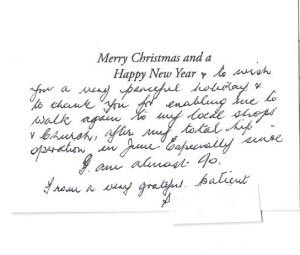 Merry Christmas and a
Happy New Year & to wish
you a very peaceful holiday &
to thank you for enabling me to
walk again to my local shops
& Church, after my total hip
operation in June Especially since
I am almost 90.
from a very grateful patient